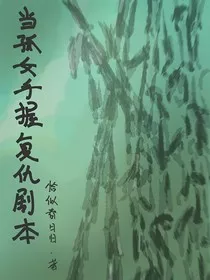 当孤女手握复仇剧本
恰似故日归·著